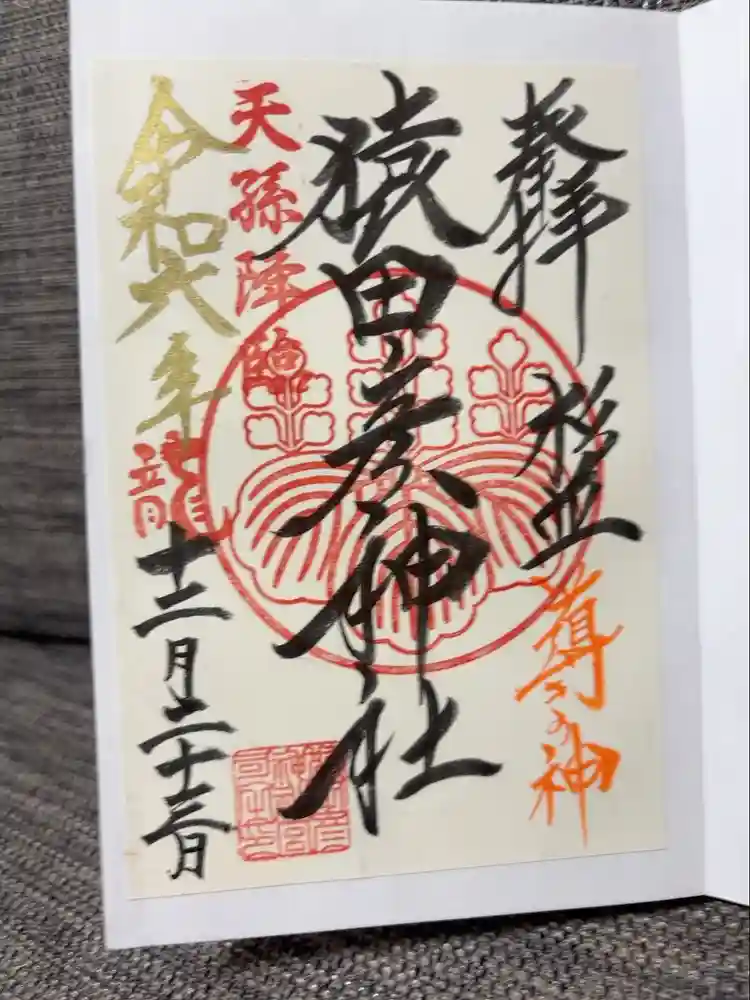 敬拝
杉並
導きの神
猿田彦神社
天孫降臨
令和六年
龍
十二月二十三日